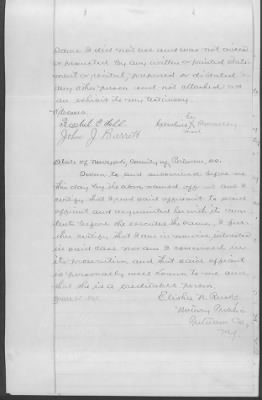 same I did not use and was not aided
or prompted by any written or printed state-
ment or recital prepared or dictated by
any other person and not attached as
an exhibit to my testimony.
Witness
her
mark
John J Barrett
State of New York, County of Putnam, ss.
Sworn to and subscribed before me
this day by the above named affiant and I
certify that I read said affidavit to said
affiant and acquainted her with its con-
tents before she executed the same, I fur-
ther certify that I am in no wise interested
in said case nor am I concerned in
its prosecution and that said affiant
is personally well known to me and
that she is a creditable person.
Elisha N. Rusk
Notary Public
Putnam Co,
N.Y.